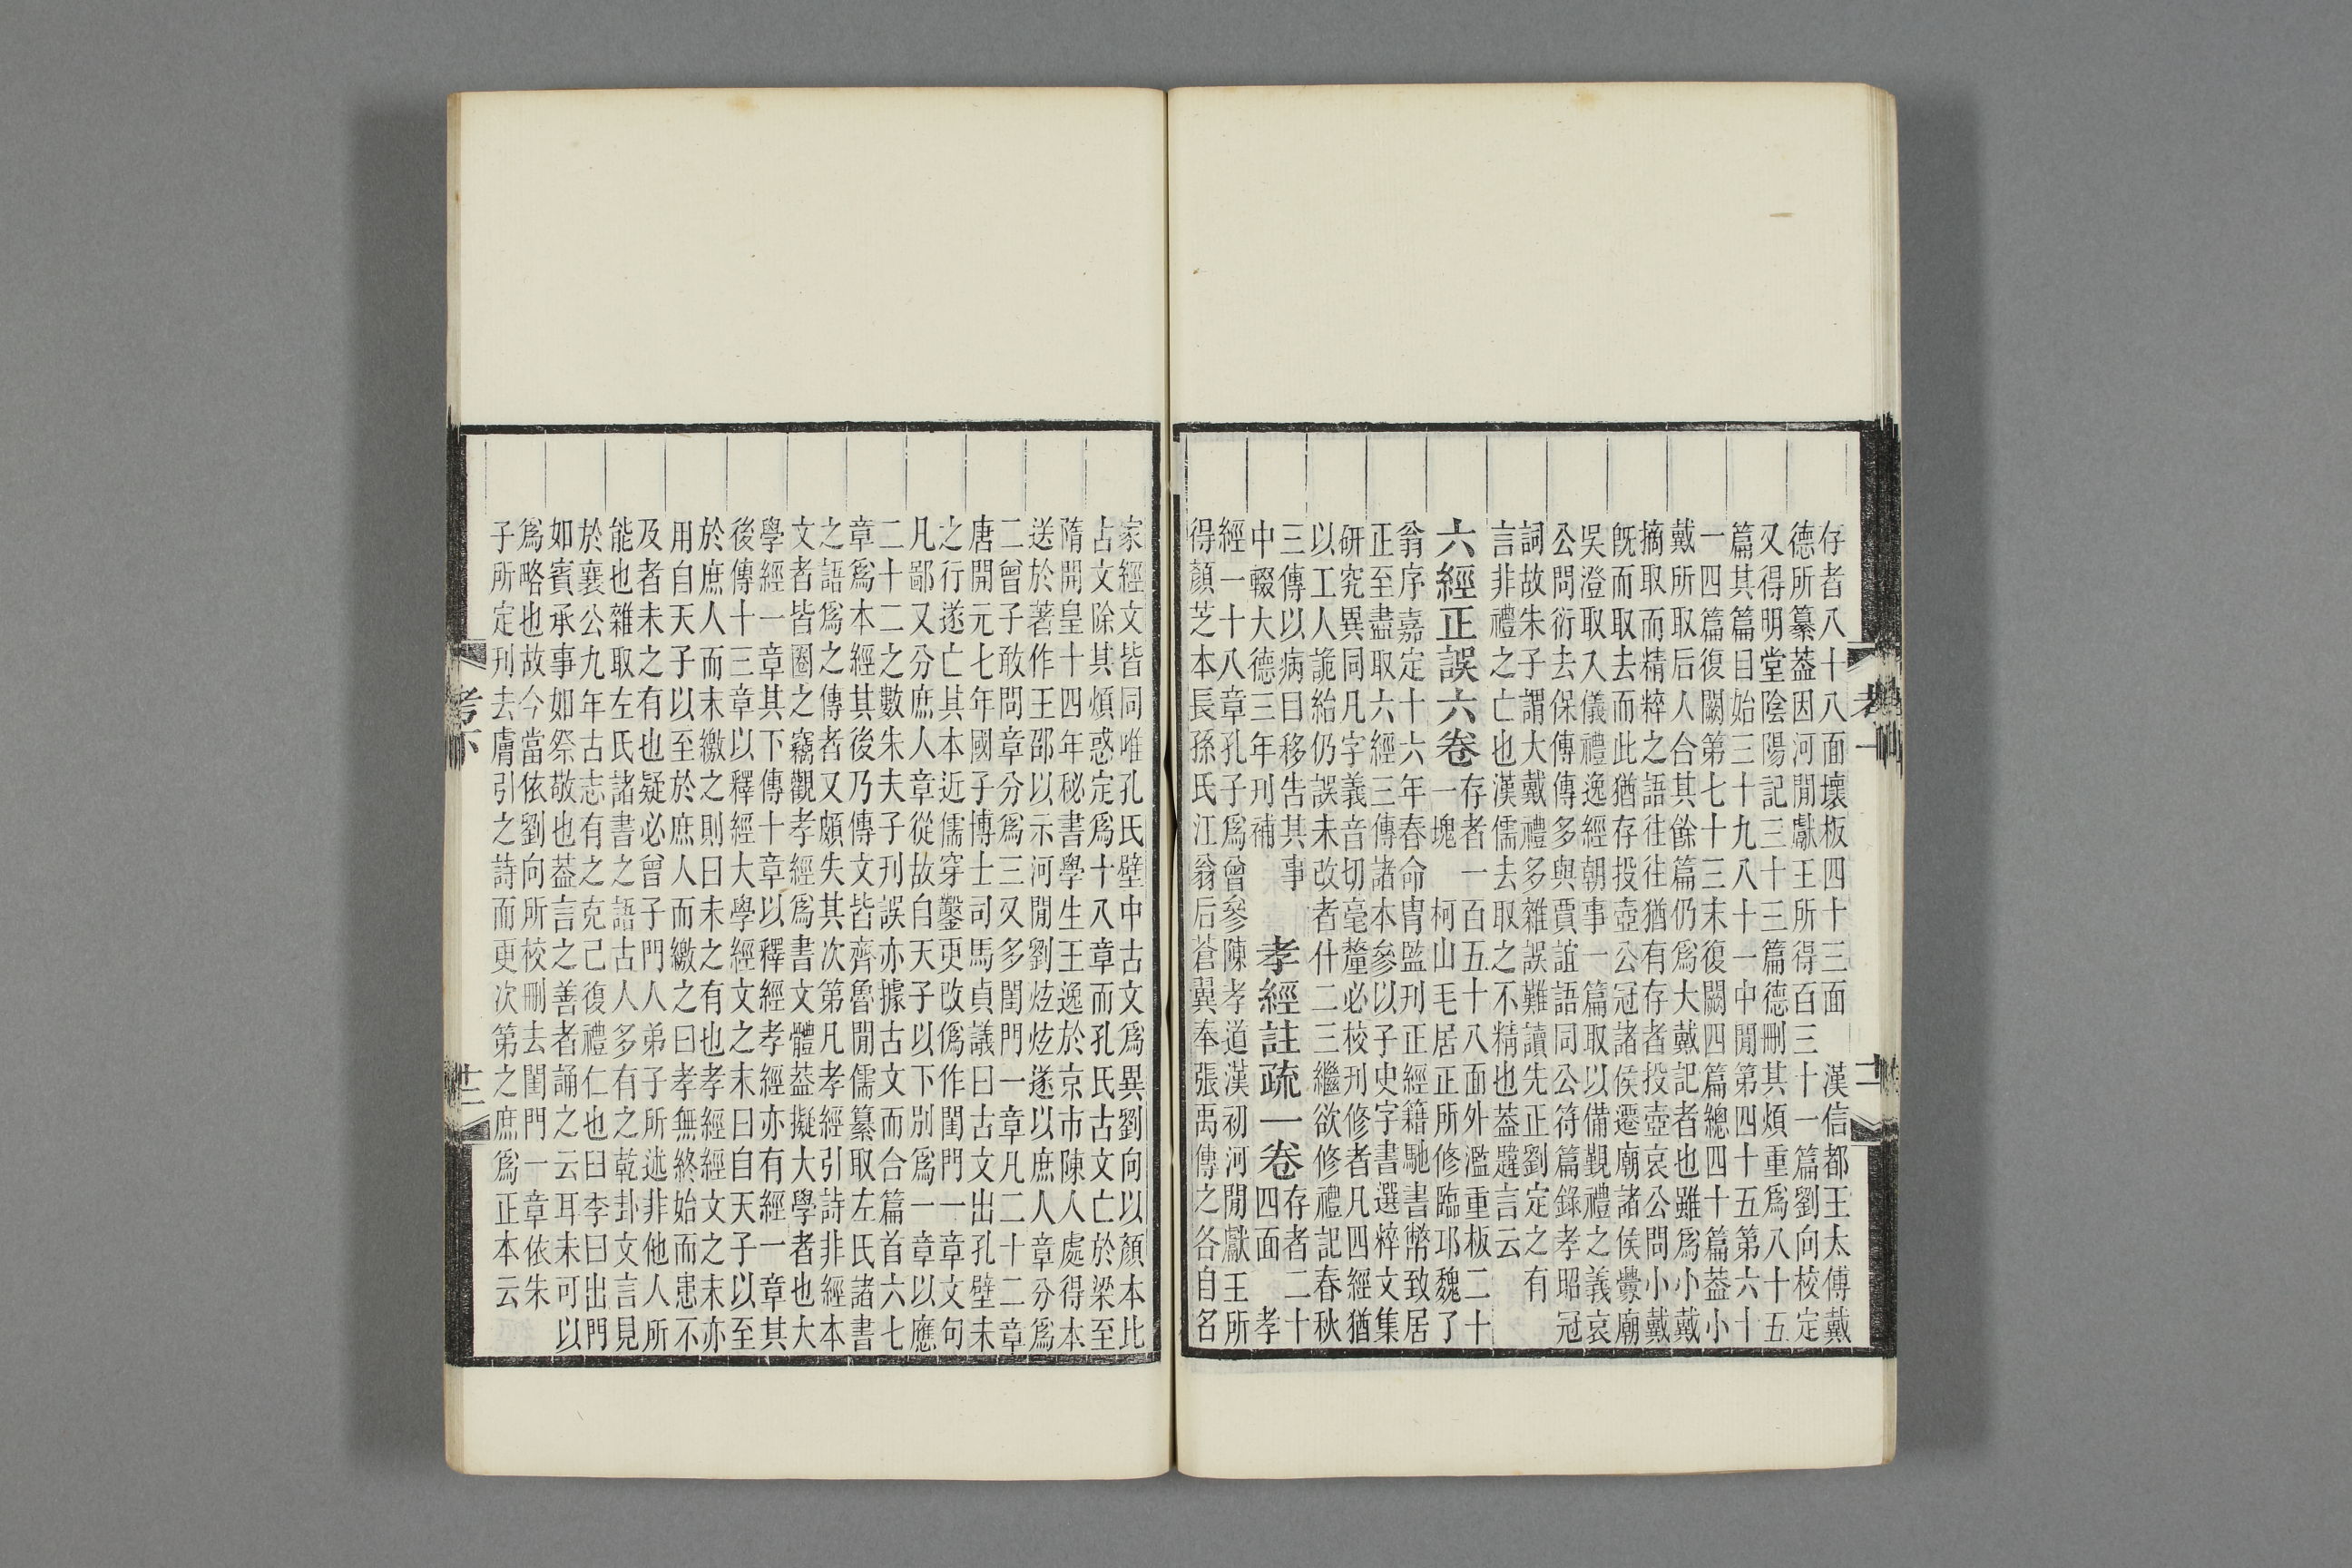 存者八十八面壞板四十三面　漢信都王太傅戴
德所纂葢因河閒獻王所得百三十一篇劉向校定
又得明堂陰陽記三十三篇德刪其煩重爲八十五
篇其篇目始三十九八十一中閒第四十五第六十
一四篇復闕第七十三末復闕四篇總四十篇葢小
戴所取后人合其餘篇仍爲大戴記者也雖爲小戴
摘取而精粹之語往往猶有存者投壺哀公問小戴
旣而取去而此猶存投壺公冠諸侯遷廟諸侯釁廟
吳澄取入儀禮逸經朝事一篇取以備覲禮之義哀
公問衍去保傳傳多與賈誼語同公符篇錄孝昭冠
詞故朱子謂大戴禮多雜誤難讀先正劉定之有
言非禮之亡也漢儒去取之不精也葢韙言云
六經正誤六卷
存者一百五十八面外濫重板二十
一塊　柯山毛居正所修臨邛魏了
翁序嘉定十六年春命冑監刊正經籍馳書幣致居
正至盡取六經三傳諸本參以子史字書選粹文集
研究異同凡字義音切毫釐必校刊修者凡四經猶
以工人詭紿仍誤未改者什二三繼欲修禮記春秋
三傳以病目移告其事
中輟大德三年刊補
孝經註疏一卷
存者二十
四面　孝
經一十八章孔子爲曾參陳孝道漢初河閒獻王所
得顏芝本長孫氏江翁后蒼翼奉張禹傳之各自名
家經文皆同唯孔氏壁中古文爲異劉向以顏本比
古文除其煩惑定爲十八章而孔氏古文亡於梁至
隋開皇十四年秘書學生王逸於京市陳人處得本
送於著作王邵以示河閒劉炫炫遂以庶人章分爲
二曾子敢問章分爲三又多閨門一章凡二十二章
唐開元七年國子博士司馬貞議曰古文出孔壁未
之行遂亡其本近儒穿鑿更改僞作閨門一章文句
凡鄙又分庶人章從故自天子以下別爲一章以應
二十二之數朱夫子刊誤亦據古文而合篇首六七
章爲本經其後乃傳文皆齊魯閒儒纂取左氏諸書
之語爲之傳者又頗失其次第凡孝經引詩非經本
文者皆圈之竊觀孝經爲書文體葢擬大學者也大
學經一章其下傳十章以釋經孝經亦有經一章其
後傳十三章以釋經大學經文之末曰自天子以至
於庶人而末繳之則曰未之有也孝經經文之末亦
用自天子以至於庶人而繳之曰孝無終始而患不
及者未之有也疑必曾子門人弟子所述非他人所
能也雜取左氏諸書之語古人多有之乾卦文言見
於襄公九年古志有之克己復禮仁也曰李曰出門
如賓承事如祭敬也葢言之善者誦之云耳未可以
爲略也故今當依劉向所校刪去閨門一章依朱
子所定刊去膚引之詩而更次第之庶爲正本云